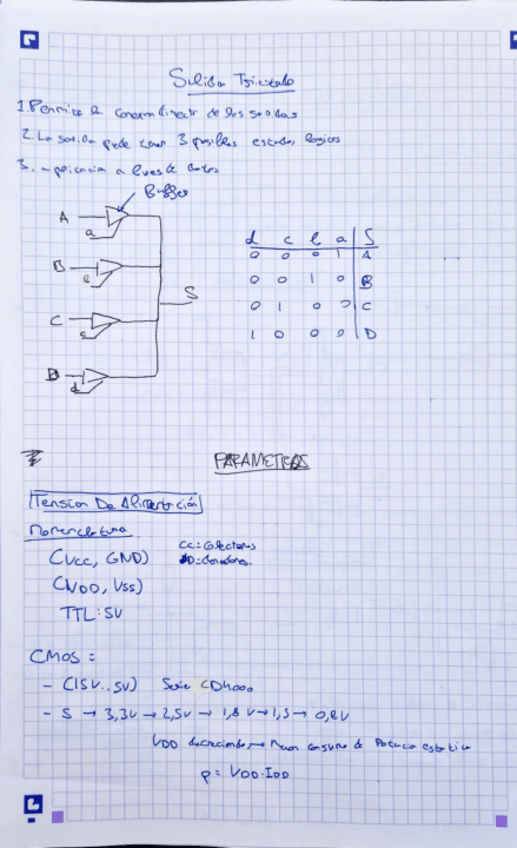 Salida Triestado
1. Permite la conexión directa de las salidas
2. La salida puede tener 3 posibles estados lógicos
3. a buses de datos
Buffer
A
a
B
C
S
c
D
d
d c b a S
0 0 0 1 A
0 0 1 0 B
0 1 0 0 C
1 0 0 0 D
PARAMETROS
Tension De Alimentación
Nomenclatura
(Vcc, GND) CC = Colectores
(VDD, Vss) D = drenadores.
TTL: 5V
CMOS:
- (15V..5V) Serie CD4000
- 5 → 3,3V → 2,5V → 1,8V → 1,5 → 0,8V
VDD decreciendo → consumo de Potencia estatica
P = VDD·IDD